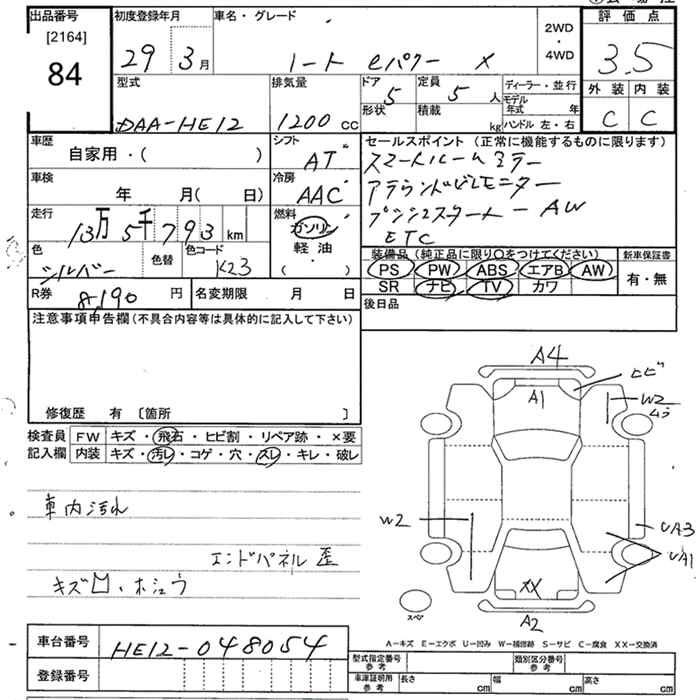 出品番号
[2164]
84
初度登録年月
29 3月
車名・グレード
ノート eパワー X
2WD
・
4WD
評価点
3.5
外装 内装
C C
型式
DAA-HE12
排気量
1200cc
ドア
5
形状
定員
5人
積載
kg
ディーラー・並行
モデル年式 年
ハンドル 左・右
車歴
自家用・( )
シフト
AT
セールスポイント(正常に機能するものに限ります)
スマートルームミラー
アラウンドビューモニター
プッシュスタート ー AW
ETC
車検
年 月( 日)
冷房
AAC
走行
13万5千793km
燃料
ガソリン
軽油
・
色
シルバー
色替
色コード
K23
装備品(純正品に限り○をつけてください)
新車保証書
PS PW ABS エアB AW
SR ナビ TV カワ
有・無
R券
8,190円
名変期限 月 日
後日品
注意事項申告欄(不具合内容等は具体的に記入して下さい)
修復歴 有 〔箇所 〕
検査員
記入欄
FW キズ・飛石・ヒビ割・リペア跡・×要
内装 キズ・汚レ・コゲ・穴・スレ・キレ・破レ
車内汚れ
エンドパネル歪
キズ凹・ホシュウ
A4
A1
ヒビ
W2
ムラ
W2
UA3
UA1
XX
A2
スペア
A-キズ E-エクボ U-凹み W-補修跡 S-サビ C-腐食 XX-交換済
車台番号
HE12-048054
登録番号
型式指定番号
参考
類別区分番号
参考
車庫証明用
参考
長さ cm
幅 cm
高さ cm